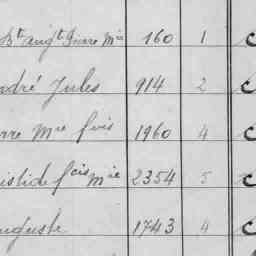 Bᵗ augᵗ Pierre Mⁱᵉ 160 1 C
ndré Jules 914 2 C
rre Mⁱᵉ fᵒⁱˢ 1960 4 C
istide fᶜⁱˢ Mⁱᵉ 2354 5 C
uguste 1743 4 C